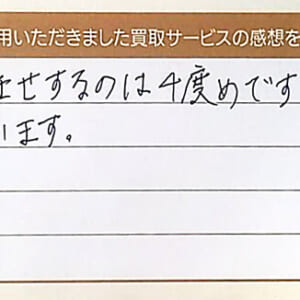 用いただきました買取サービスの感想を
任せするのは4度めです
います。